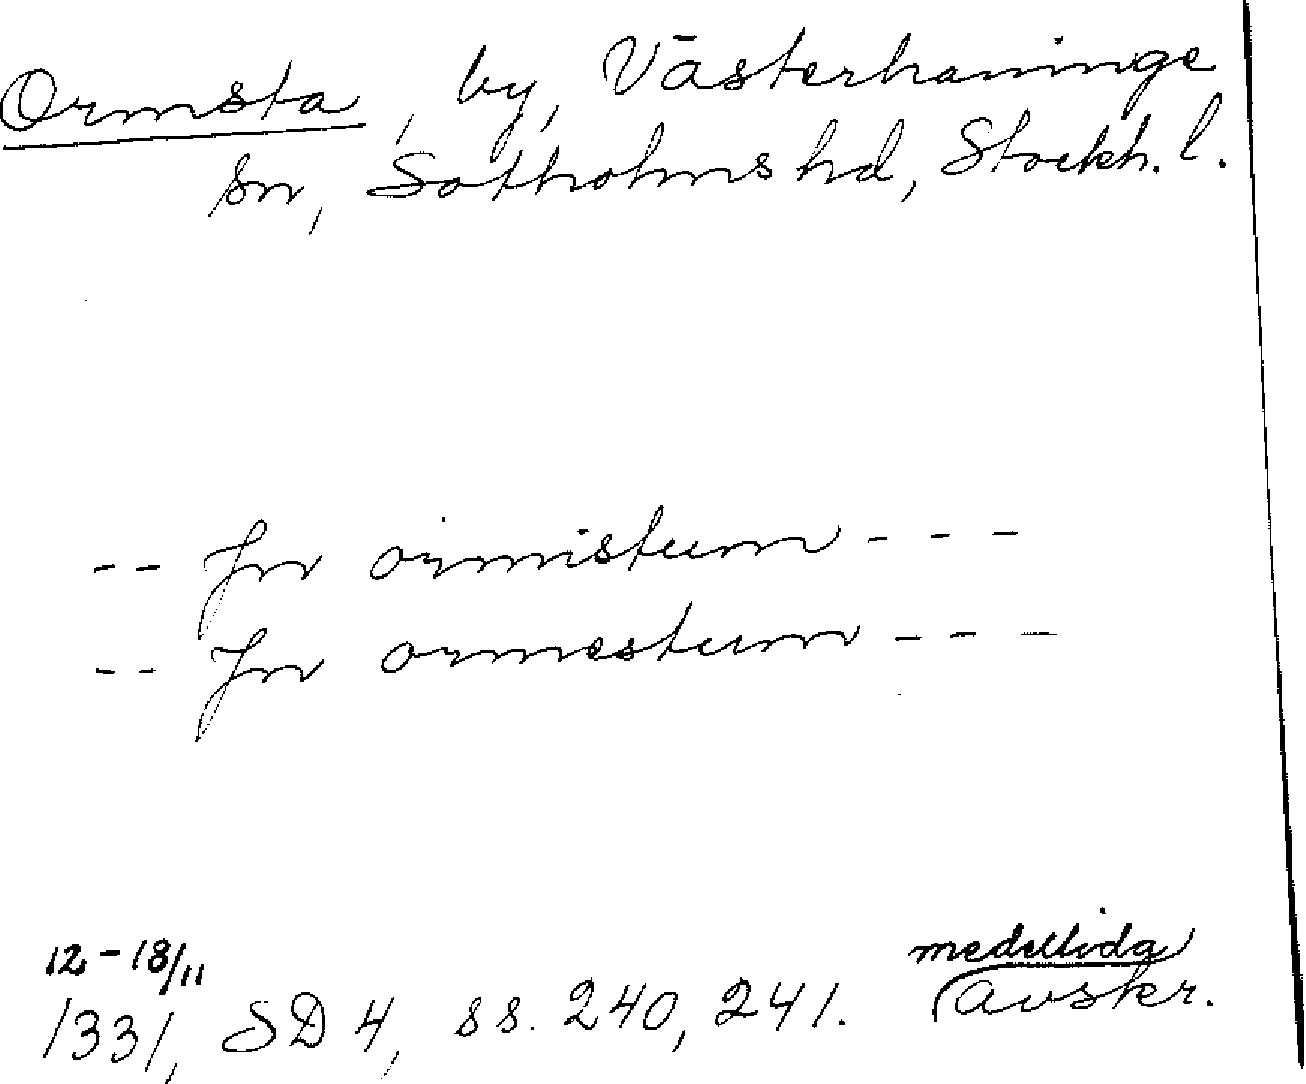 Ormsta, by, Västerhaninge
sn, Sotholms hd, Stockh. l.
-- Jn ormistum ---
-- Jn ormestum ---
12-18/11 medeltida
1331, SD 4, ss. 240, 241. avskr.